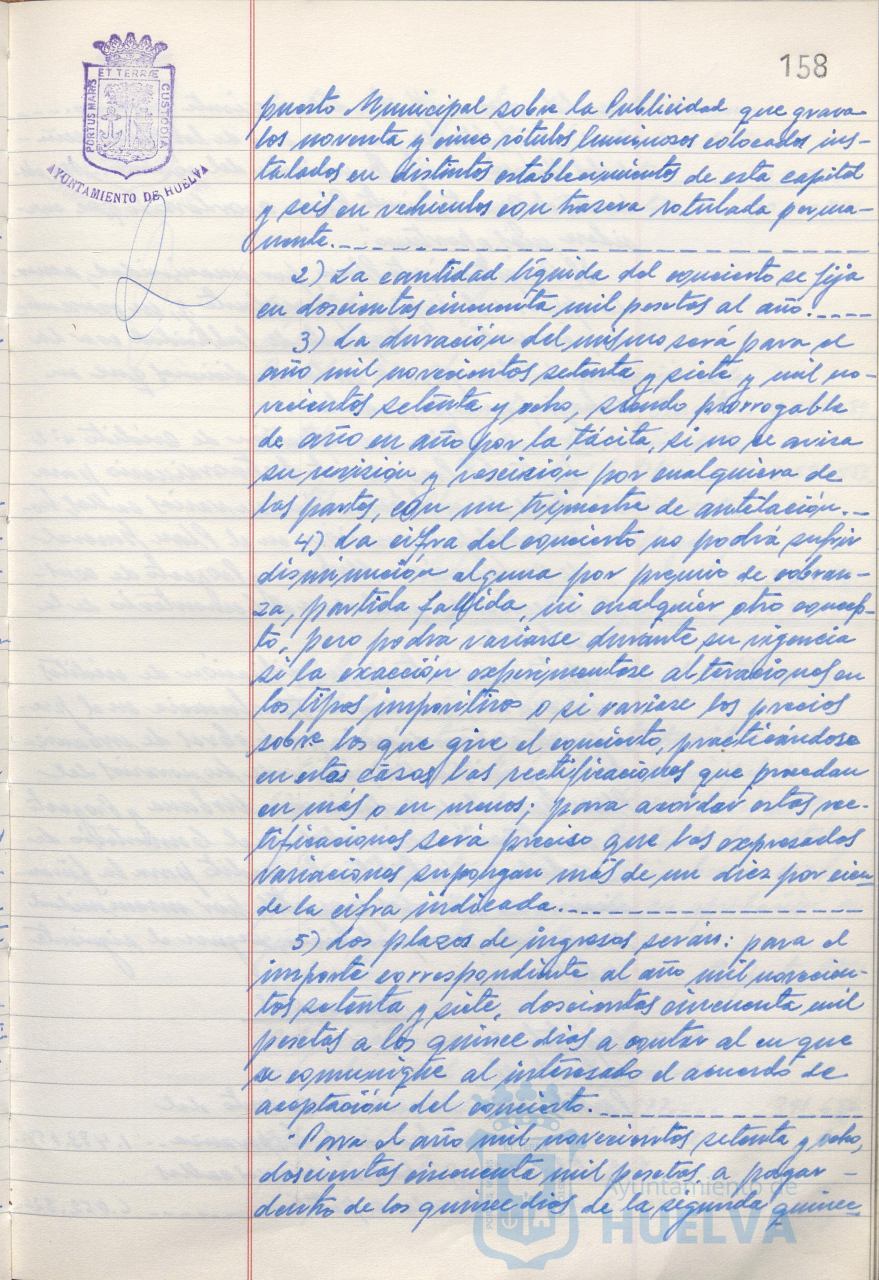 158
ET TERRÆ
PORTUS MARIS
CUSTODIA
AYUNTAMIENTO DE HUELVA
puesto Municipal sobre la Publicidad que grava
los noventa y cinco rótulos luminosos colocados ins-
talados en distintos establecimientos de esta capital
y seis en vehículos con trasera rotulada perma-
nente.
2) La cantidad líquida del concierto se fija
en doscientas cincuenta mil pesetas al año.
3) La duración del mismo será para el
año mil novecientos setenta y siete y mil no-
vecientos setenta y ocho, siendo prorrogable
de año en año por la tácita, si no se avisa
su revisión y rescisión por cualquiera de
las partes, con un trimestre de antelación.
4) La cifra del concierto no podrá sufrir
disminución alguna por premio de cobran-
za, partida fallida, ni cualquier otro concep-
to, pero podrá variarse durante su vigencia
si la exacción experimentase alteraciones en
los tipos impositivos o si variase los precios
sobre los que gire el concierto, practicándose
en estos casos las rectificaciones que procedan
en más o en menos; para acordar estas rec-
tificaciones será preciso que las expresadas
variaciones supongan más de un diez por cien
de la cifra indicada.
5) Los plazos de ingresos serán: para el
importe correspondiente al año mil novecien-
tos setenta y siete, doscientas cincuenta mil
pesetas a los quince días a contar al en que
se comunique al interesado el acuerdo de
aceptación del concierto.
"Para el año mil novecientos setenta y ocho,
doscientas cincuenta mil pesetas, a pagar
dentro de los quince días de la segunda quince
Ayuntamiento de
HUELVA